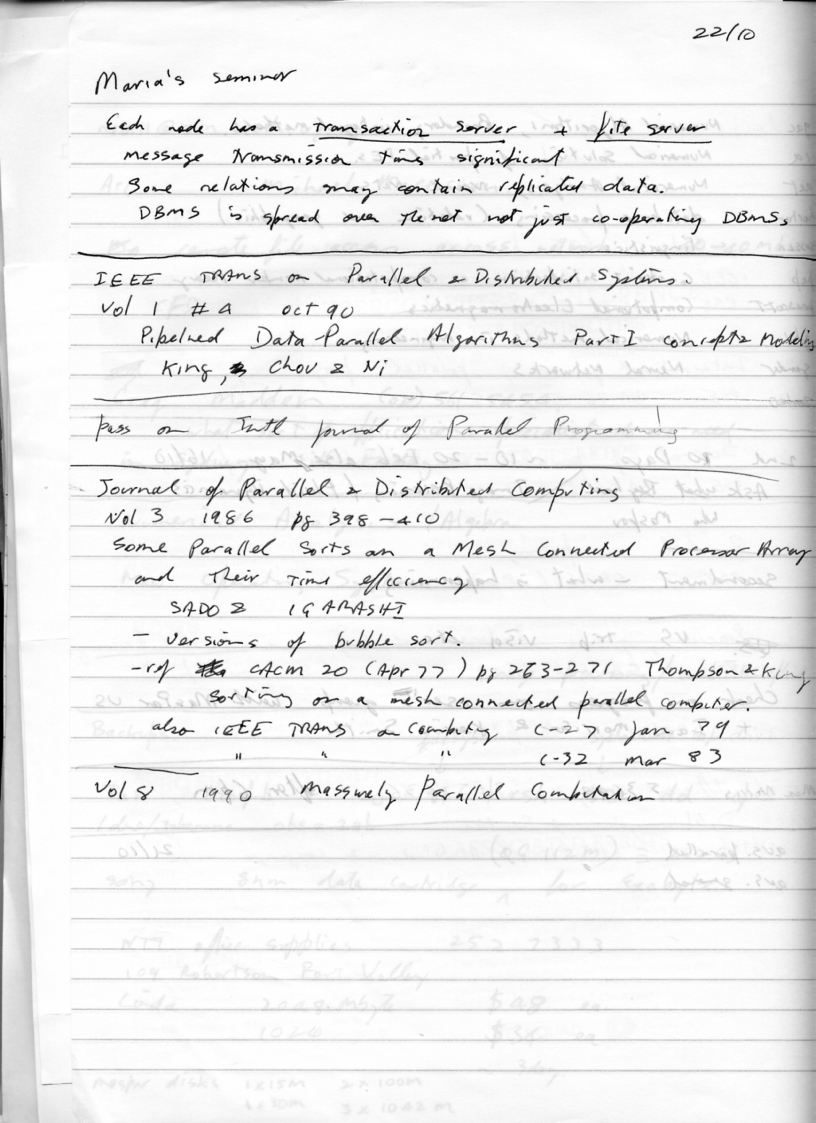 22/10
Maria's seminar
Each node has a transaction server + file server
message transmission time significant
Some relations may contain replicated data.
DBMS is spread over the net not just co-operating DBMSs
IEEE TRANS on Parallel & Distributed Systems.
Vol 1 #4 oct 90
Pipelined Data-Parallel Algorithms Part I concept & Modeling
King, Chou & Ni
pass on Intl Journal of Parallel Programming
Journal of Parallel & Distributed Computing
Vol 3 1986 pg 398-410
Some Parallel Sorts on a Mesh Connected Processor Array
and their Time efficiency
SADO & IGARASHI
- versions of bubble sort.
- ref CACM 20 (Apr 77) pg 263-271 Thompson & Kung
Sorting on a mesh connected parallel computer.
also IEEE TRANS on Computing C-27 Jan 79
" " " C-32 mar 83
Vol 8 1990 Massively Parallel Computation